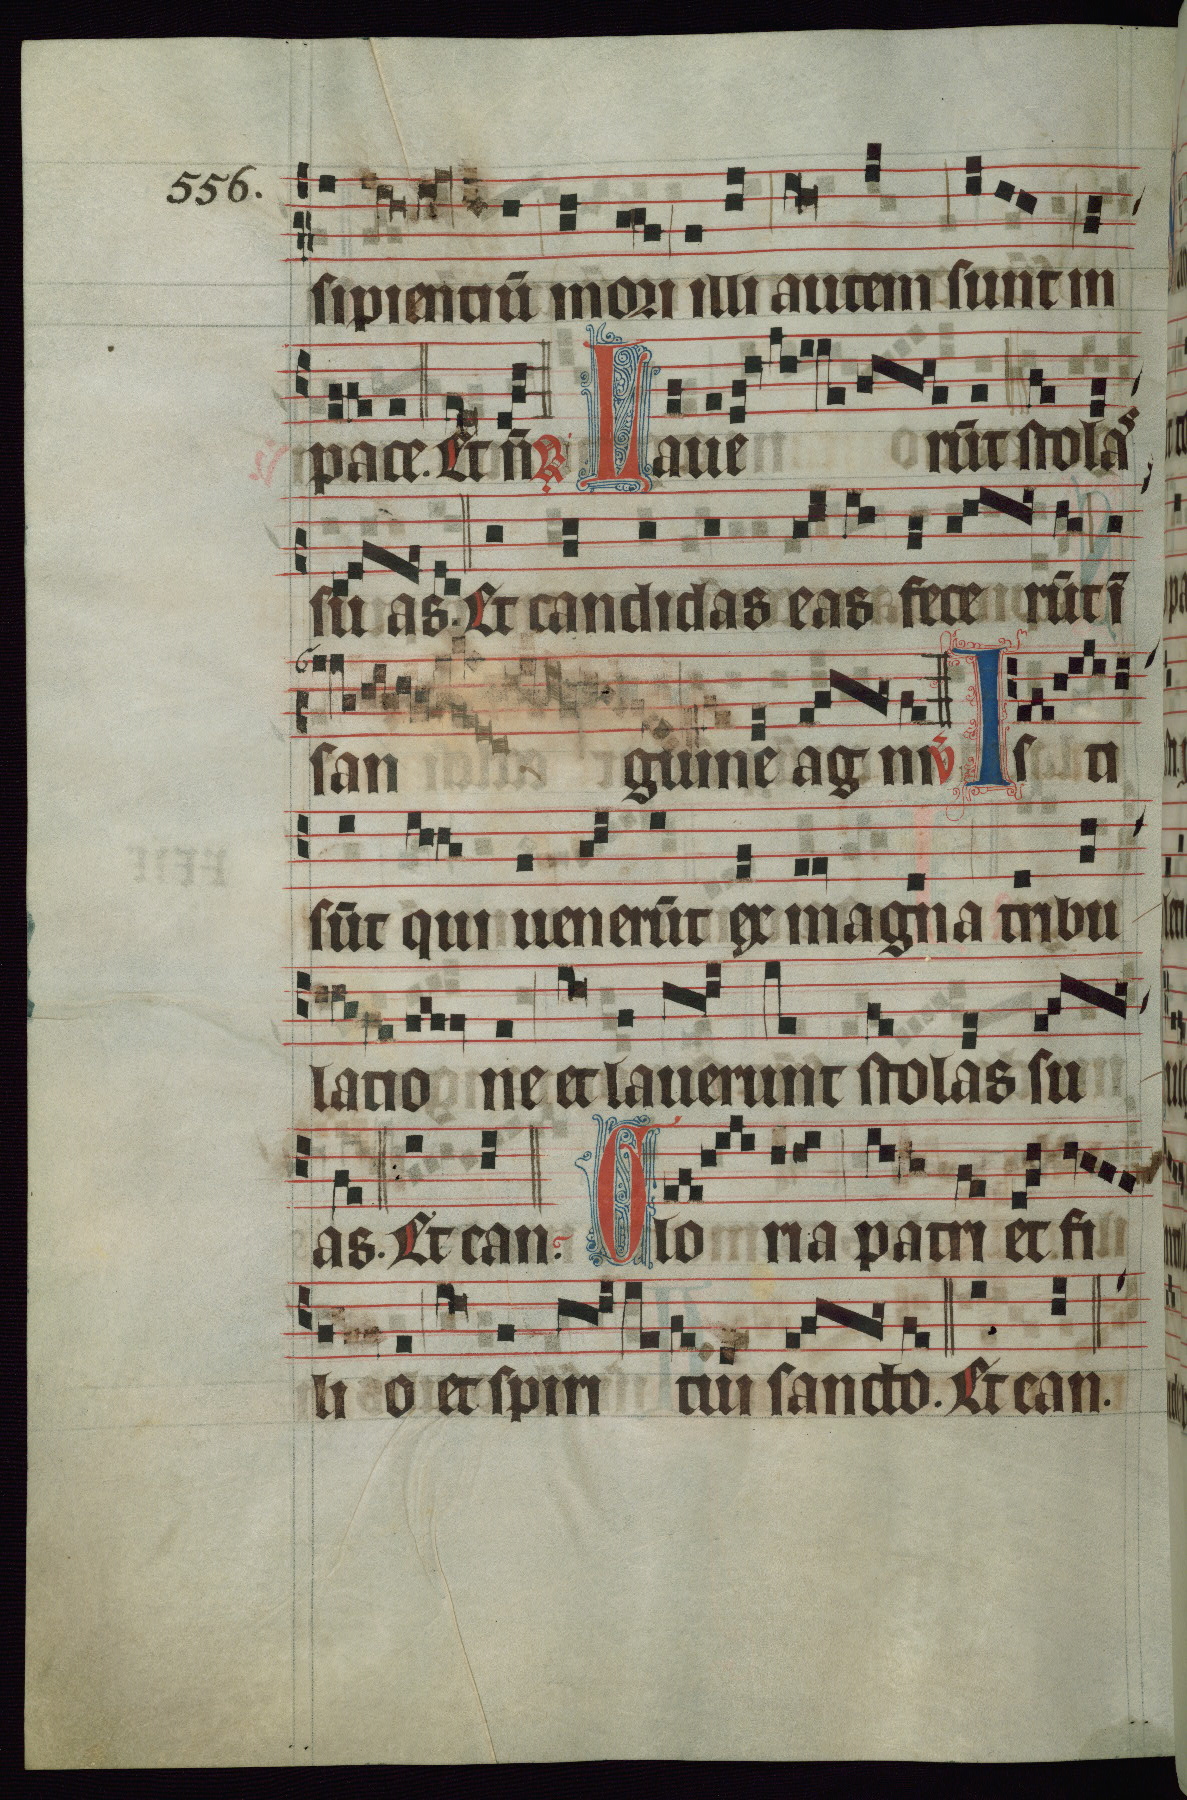 556.
sipientiū mori illi autem sunt in
pace. Et n̄ ℟ Laue rūt stolas
su as. Et candidas eas fece rūt ī
san guine ag ni ℣ Is ti
sūt qui uenerūt ex magna tribu
latio ne et lauerunt stolas su
as. Et can. Glo ria patri et fi
li o et spiri tui sancto. Et can.